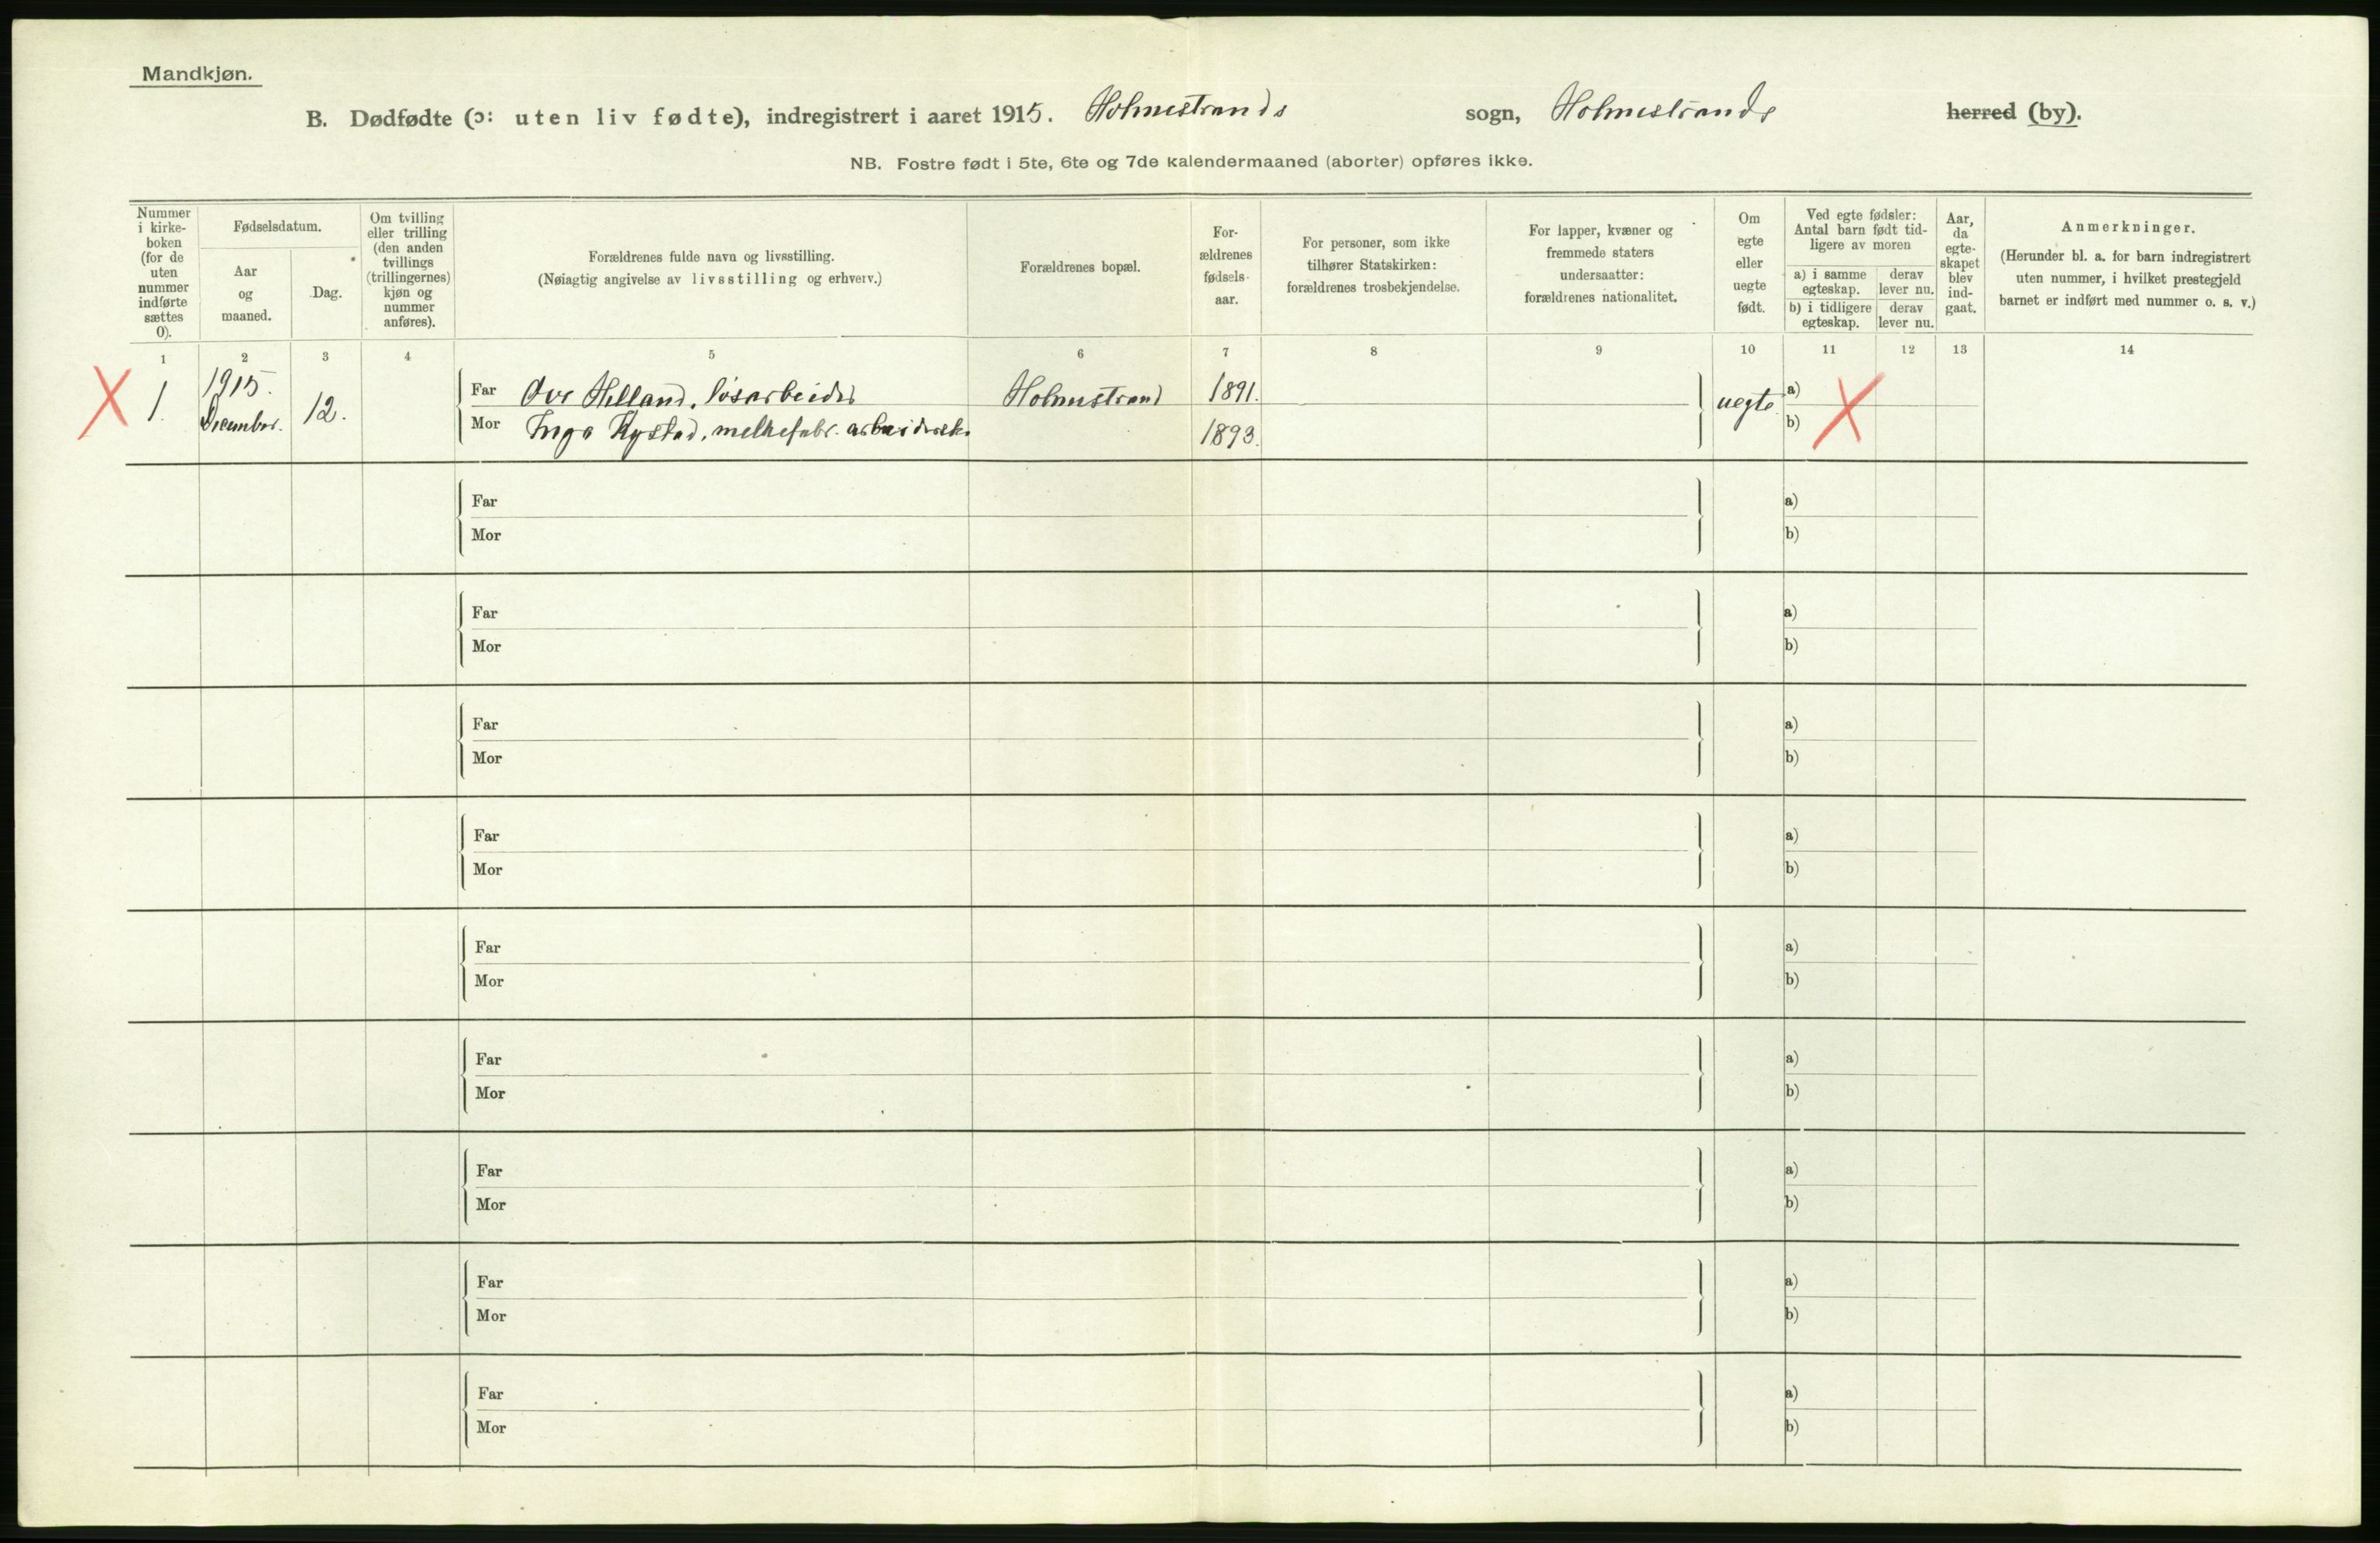 Mandkjøn.
B. Dødfødte (ɔ: uten liv fødte), indregistrert i aaret 1915. Holmestrands sogn, Holmestrands herred (by).
NB. Fostre født i 5te, 6te og 7de kalendermaaned (aborter) opføres ikke.
Nummer
i kirke-
boken
(for de
uten
nummer
indførte
sættes
0).
Fødselsdatum.
Aar
og
maaned.
Dag.
Om tvilling
eller trilling
(den anden
tvillings
(trillingernes)
kjøn og
nummer
anføres).
Forældrenes fulde navn og livsstilling.
(Nøiagtig angivelse av livsstilling og erhverv.)
Forældrenes bopæl.
For-
ældrenes
fødsels-
aar.
For personer, som ikke
tilhører Statskirken:
forældrenes trosbekjendelse.
For lapper, kvæner og
fremmede staters
undersaatter:
forældrenes nationalitet.
Om
egte
eller
uegte
født.
Ved egte fødsler:
Antal barn født tid-
ligere av moren
a) i samme
egteskap.
derav
lever nu.
b) i tidligere
egteskap.
derav
lever nu.
Aar,
da
egte-
skapet
blev
ind-
gaat.
Anmerkninger.
(Herunder bl. a. for barn indregistrert
uten nummer, i hvilket prestegjeld
barnet er indført med nummer o. s. v.)
1 2 3 4 5 6 7 8 9 10 11 12 13 14
1. 1915. December. 12.
Far Ove Helland, løsarbeider Holmestrand 1891. uegte a)
Mor Inga Rystad, melkefabr. arbeiderske 1893. b)
Far a)
Mor b)
Far a)
Mor b)
Far a)
Mor b)
Far a)
Mor b)
Far a)
Mor b)
Far a)
Mor b)
Far a)
Mor b)
Far a)
Mor b)
Far a)
Mor b)